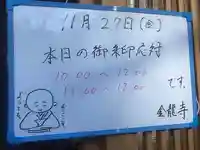 11月27日(金)
本日の御朱印応対
10:00 ~ 12:00
13:00 ~
です。
金龍寺